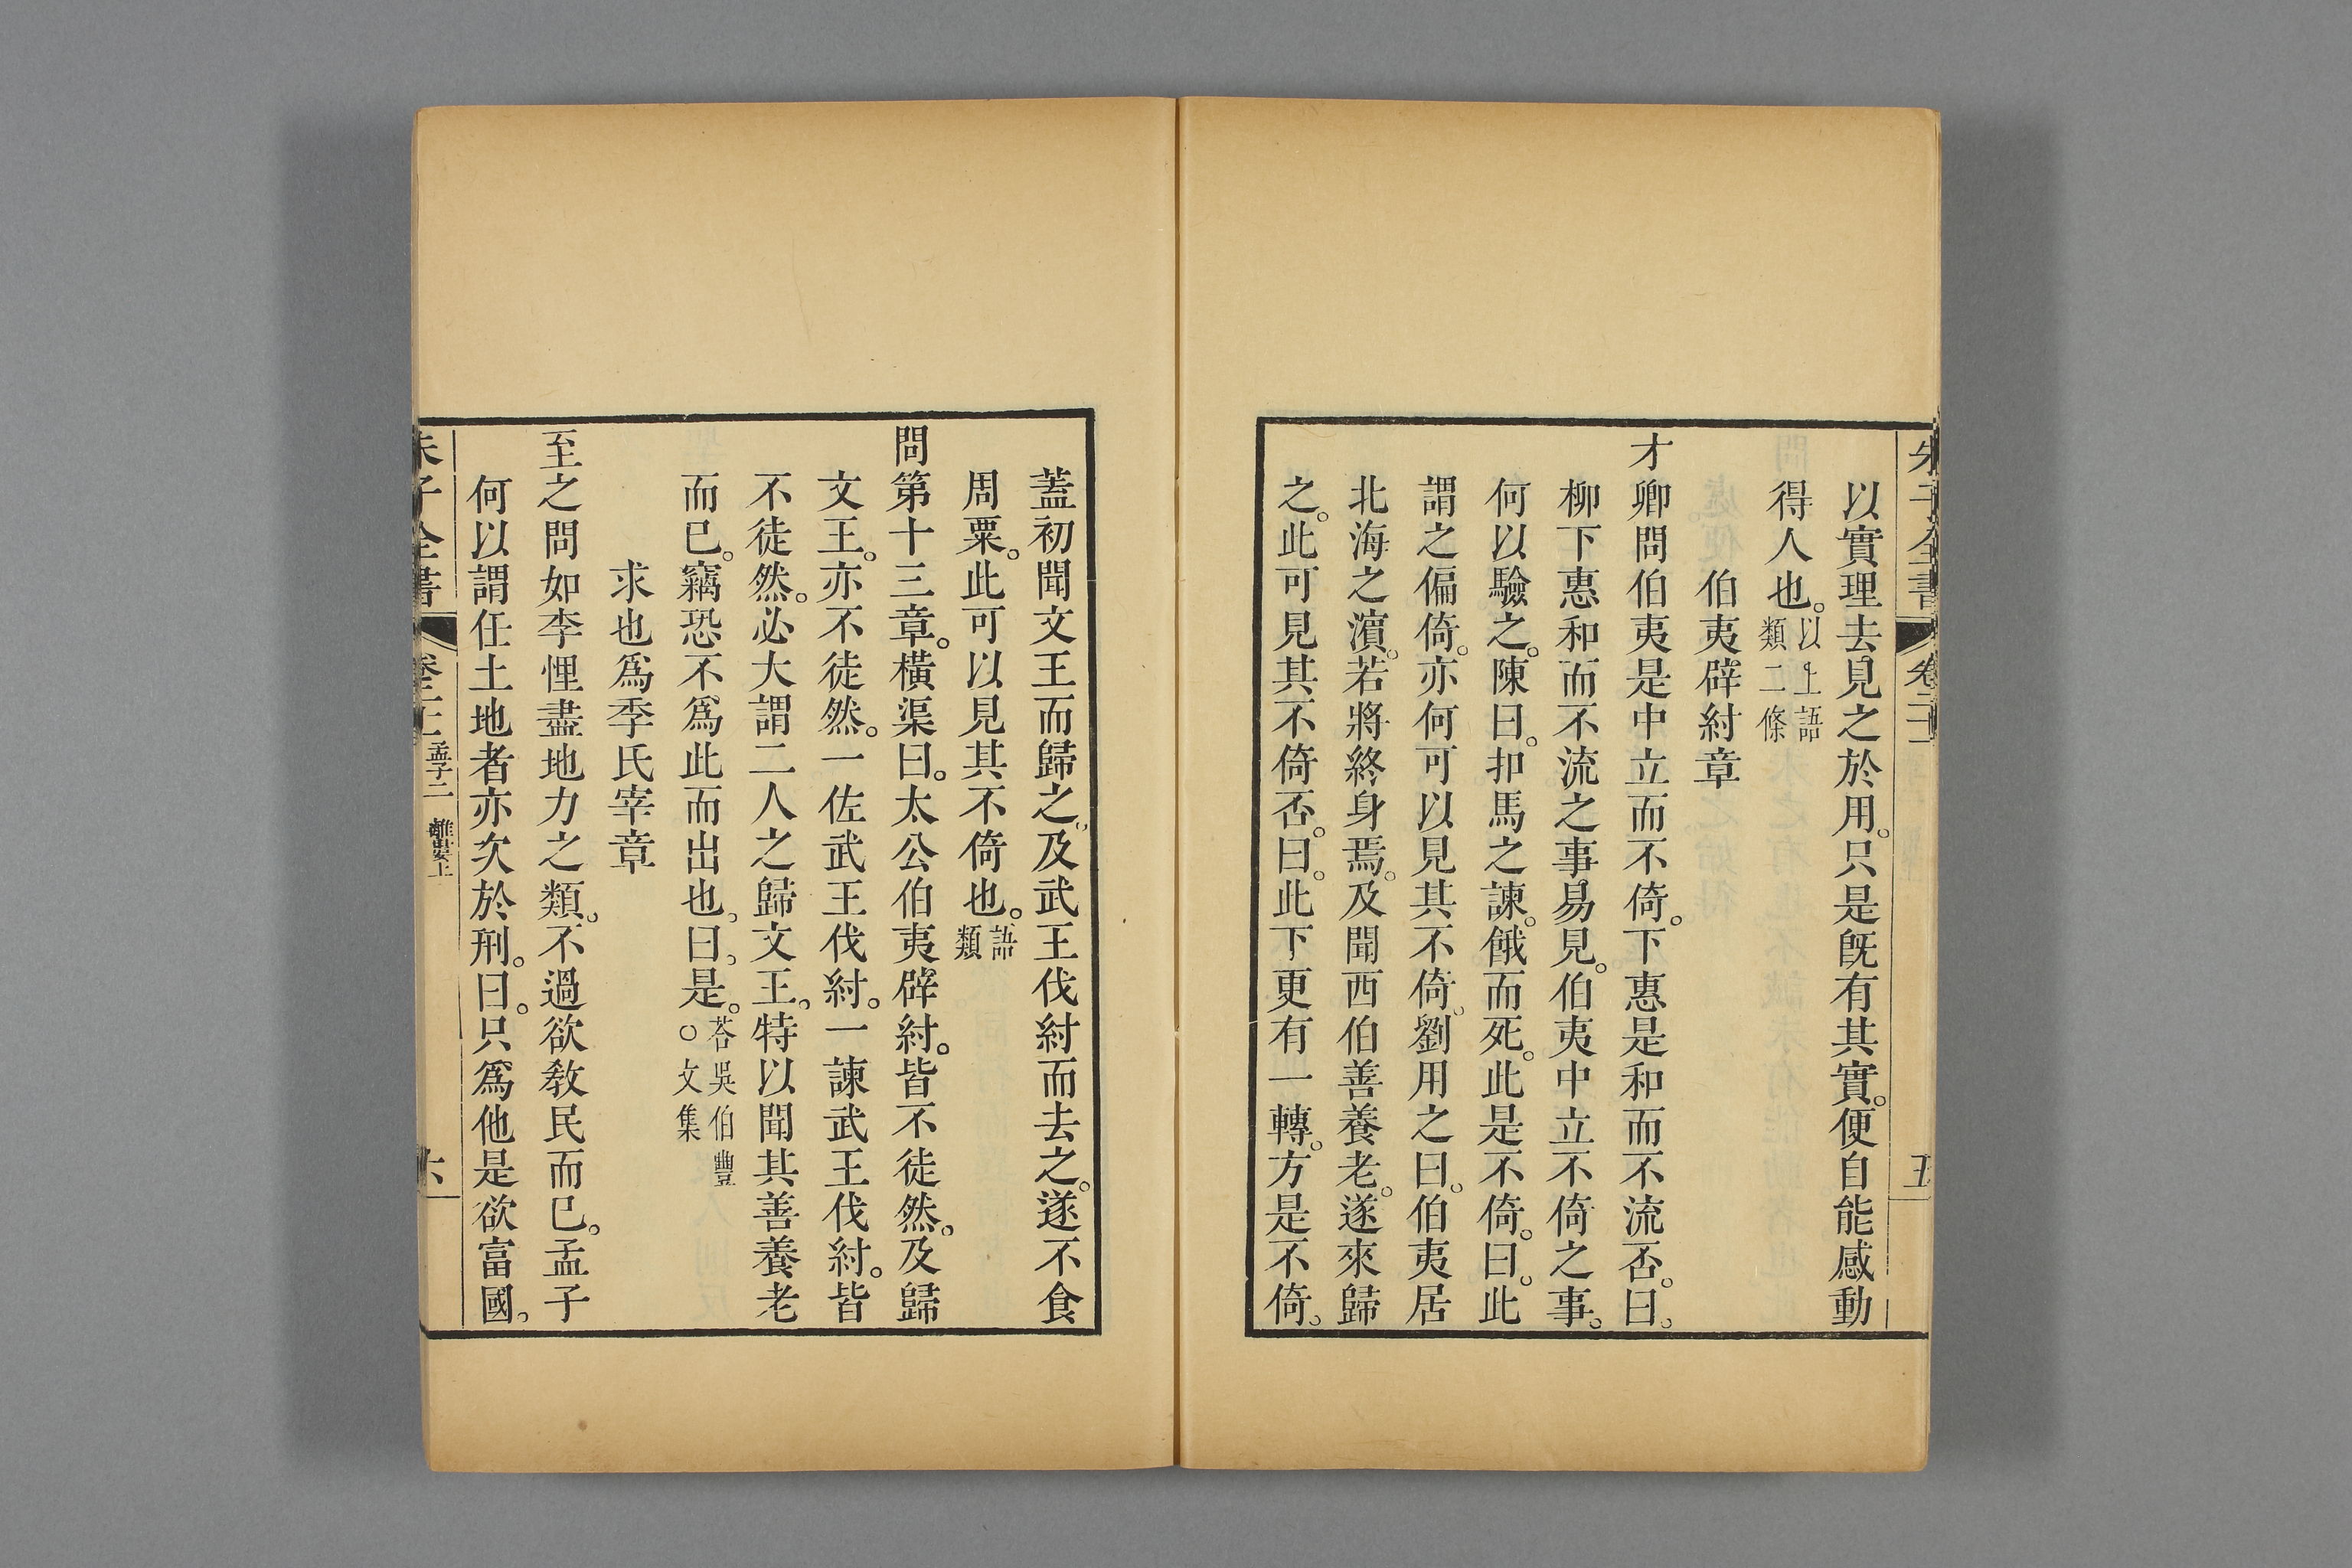 朱子全書 卷二十一 五
以實理去見之於用。只是旣有其實。便自能感動
得人也。以上語類二條
伯夷辟紂章
才卿問伯夷是中立而不倚。下惠是和而不流否。曰。
柳下惠和而不流之事易見。伯夷中立不倚之事。
何以驗之。陳曰。扣馬之諫。餓而死。此是不倚。曰。此
謂之偏倚。亦何可以見其不倚。劉用之曰。伯夷居
北海之濵。若將終身焉。及聞西伯善養老。遂來歸
之。此可見其不倚否。曰。此下更有一轉。方是不倚。
蓋初聞文王而歸之。及武王伐紂而去之。遂不食
周粟。此可以見其不倚也。語類
問第十三章。橫渠曰。太公伯夷辟紂。皆不徒然。及歸
文王。亦不徒然。一佐武王伐紂。一諫武王伐紂。皆
不徒然。必大謂二人之歸文王。特以聞其善養老
而已。竊恐不爲此而出也。曰。是。荅吳伯豐○文集
求也爲季氏宰章
至之問如李悝盡地力之類。不過欲敎民而已。孟子
何以謂任土地者亦次於刑。曰。只爲他是欲富國。
朱子全書 孟子二 離婁上 六